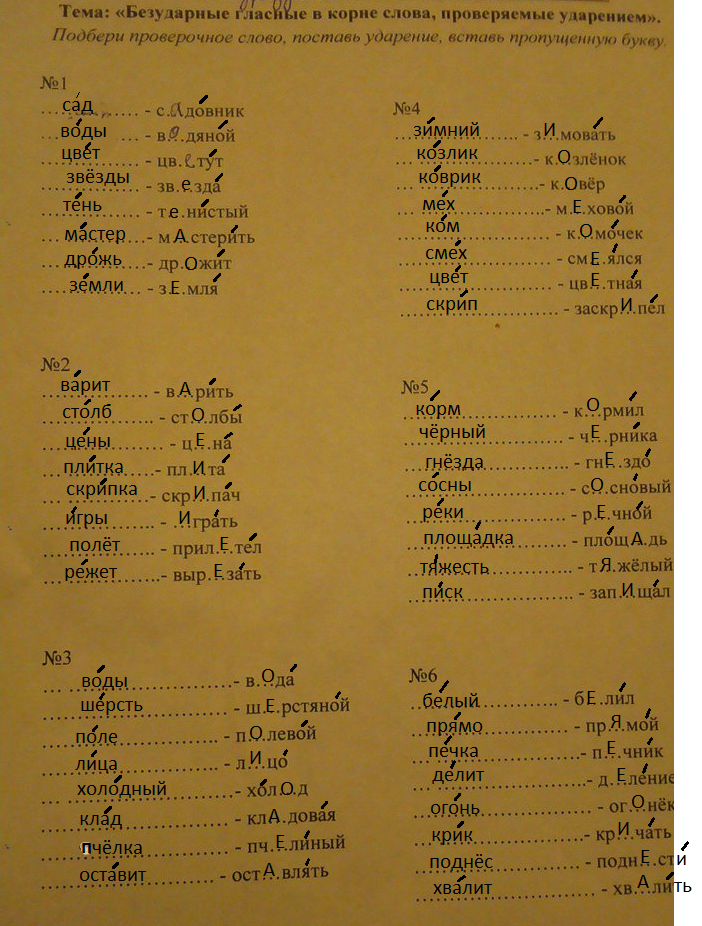 Тема: «Безударные гласные в корне слова, проверяемые ударением».
Подбери проверочное слово, поставь ударение, вставь пропущенную букву.
№1
са́д - с.а.до́вник
во́ды - в.о.дяно́й
цве́т - цв.е.ту́т
звёзды - зв.е.зда́
те́нь - т.е.ни́стый
ма́стер - м.А.стери́ть
дро́жь - др.О.жи́т
зе́мли - з.Е.мля́
№2
ва́рит - в.А.ри́ть
сто́лб - ст.О.лбы́
це́ны - ц.Е.на́
пли́тка - пл.И.та́
скри́пка - скр.И.па́ч
и́гры - .И.гра́ть
полёт - прил.Е.те́л
ре́жет - выр.Е.за́ть
№3
во́ды - в.О.да́
ше́рсть - ш.Е.рстяно́й
по́ле - п.О.лево́й
ли́ца - л.И.цо́
холо́дный - хо́л.О.д
кла́д - кл.А.дова́я
пчёлка - пч.Е.ли́ный
оста́вит - ост.А.вля́ть
№4
зи́мний - з.И.мова́ть
ко́злик - к.О.злёнок
ко́врик - к.О.вёр
ме́х - м.Е.хово́й
ко́м - к.О.мо́чек
сме́х - см.Е.я́лся
цве́т - цв.Е.тна́я
скри́п - заскр.И.пе́л
№5
ко́рм - к.О.рми́л
чёрный - ч.Е.рни́ка
гнёзда - гн.Е.здо́
со́сны - с.О.сно́вый
ре́ки - р.Е.чно́й
площа́дка - пло́щ.А.дь
тя́жесть - т.Я.жёлый
пи́ск - зап.И.ща́л
№6
бе́лый - б.Е.ли́л
пря́мо - пр.Я.мо́й
пе́чка - п.Е.чни́к
де́лит - д.Е.ле́ние
ого́нь - ог.О.нёк
кри́к - кр.И.ча́ть
поднёс - подн.Е.сти́
хва́лит - хв.А.ли́ть